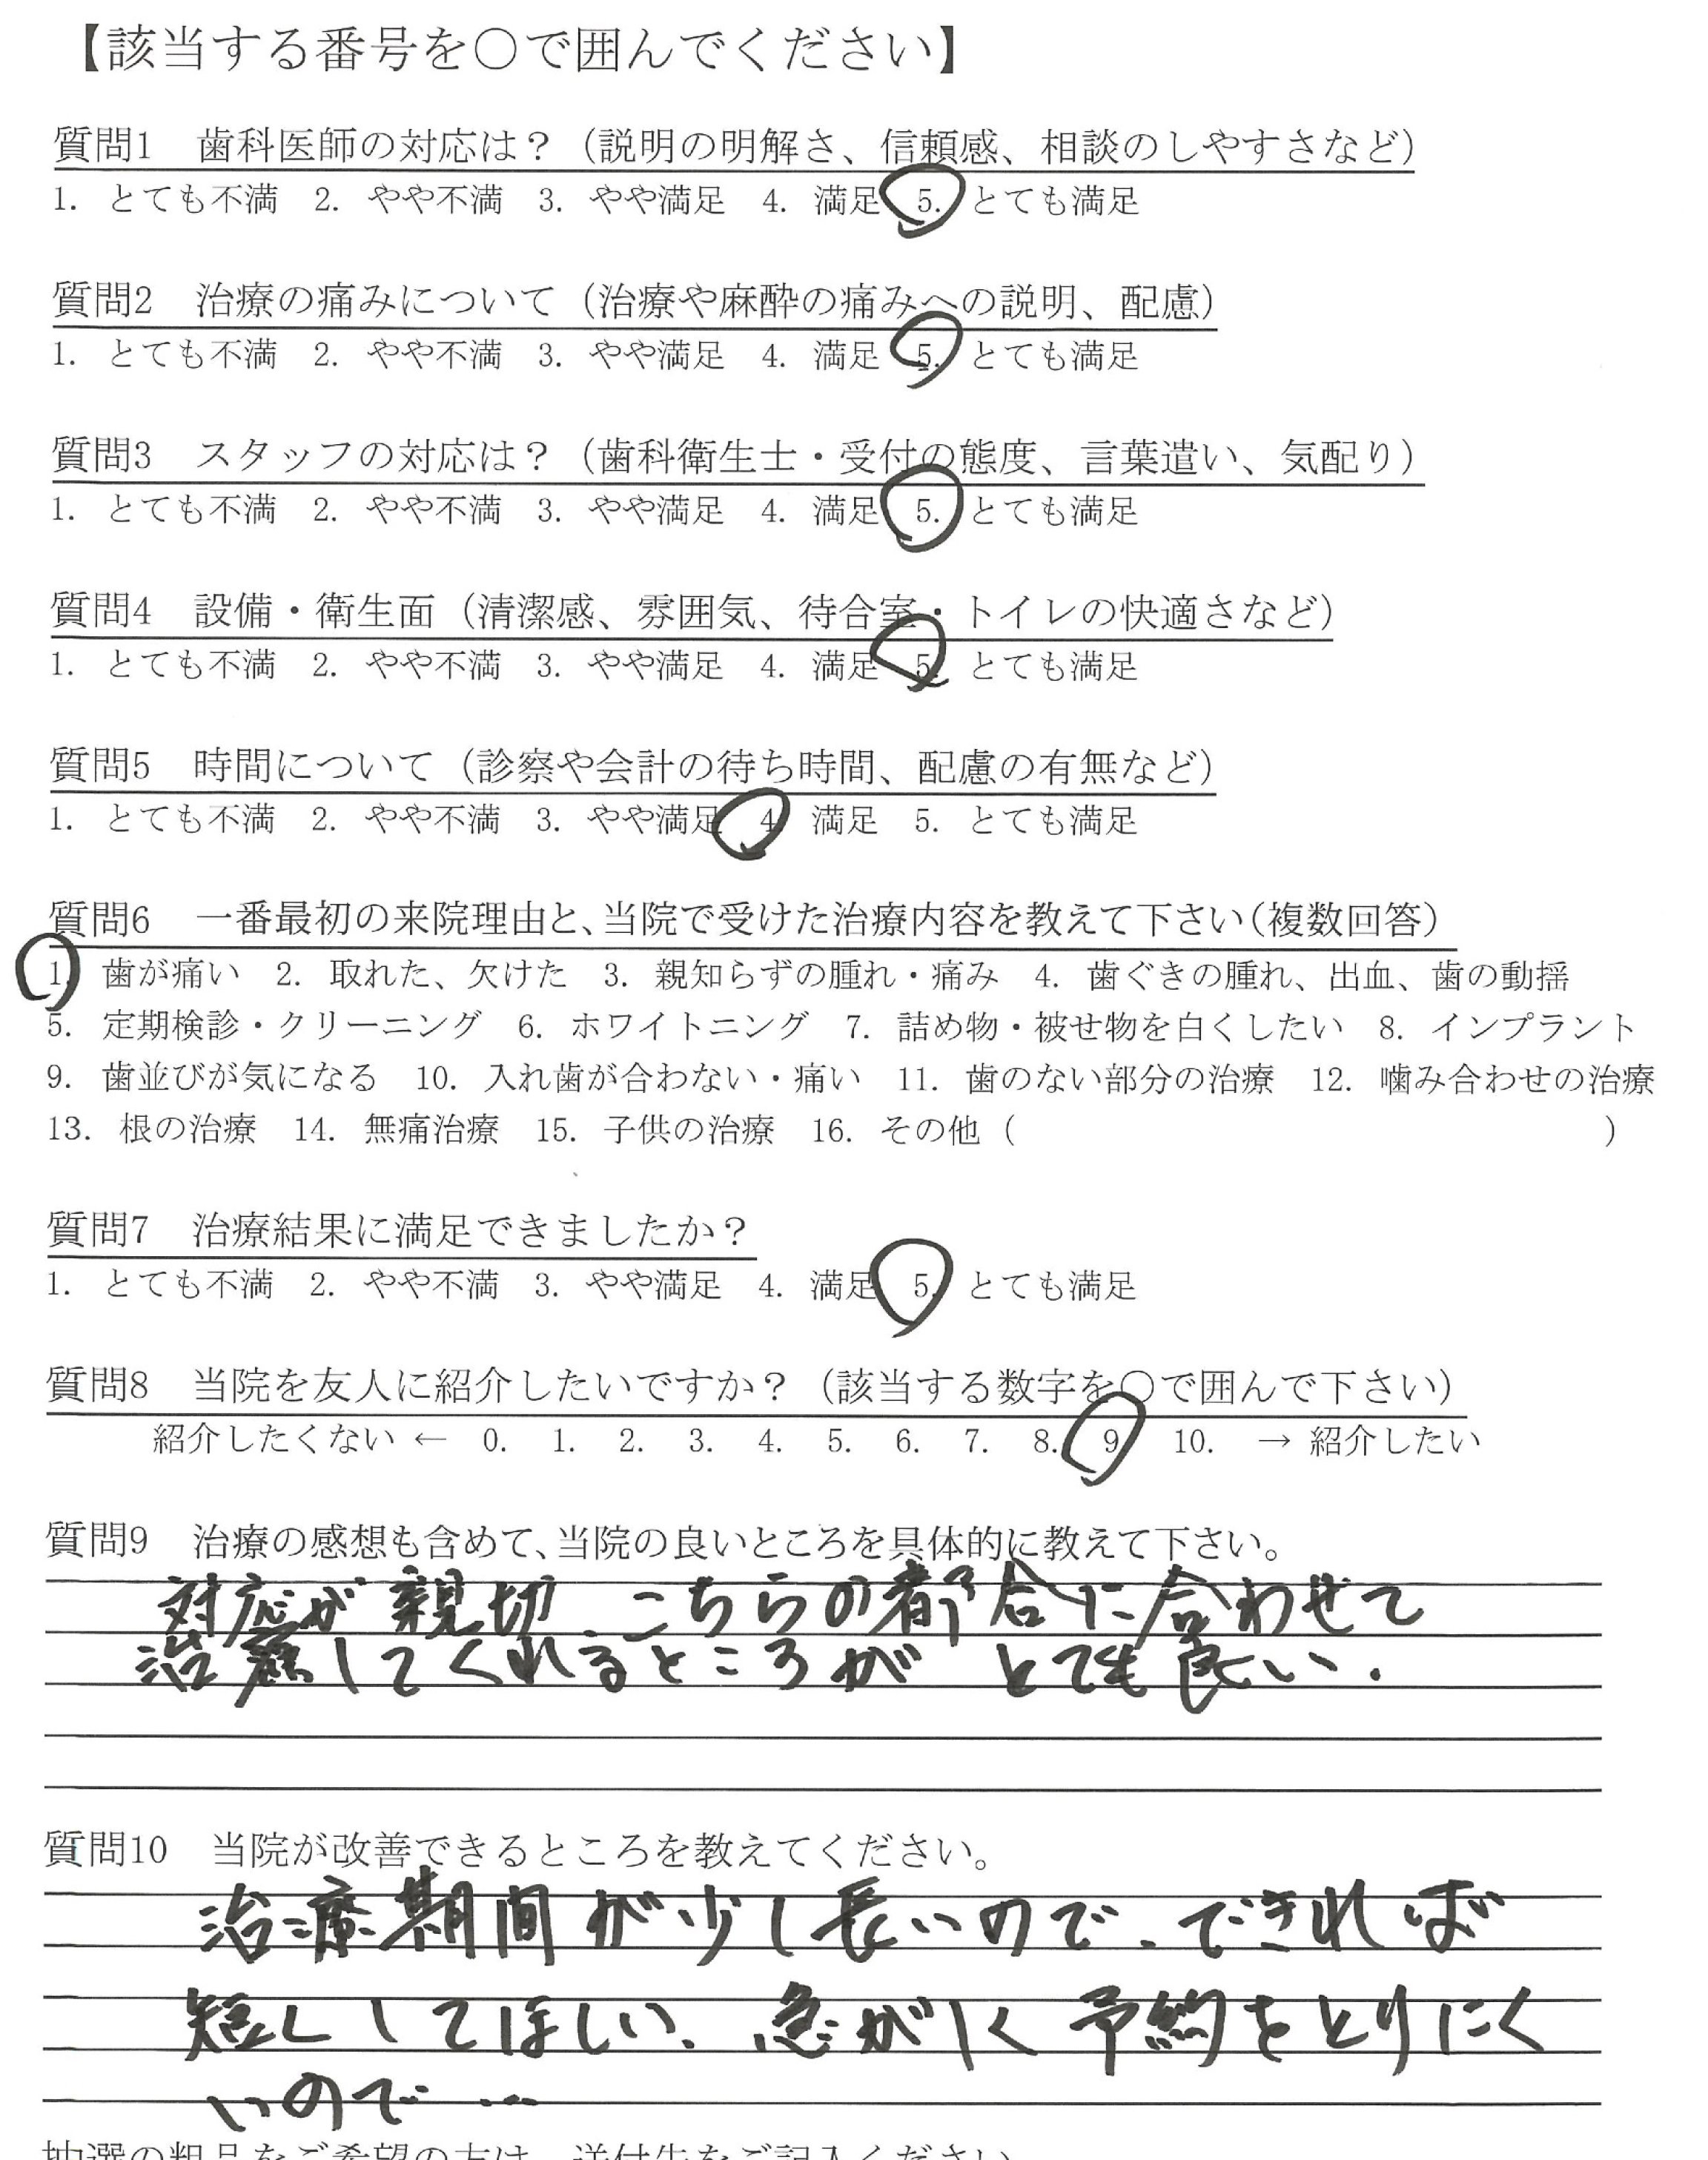 【該当する番号を○で囲んでください】
質問1　歯科医師の対応は？（説明の明解さ、信頼感、相談のしやすさなど）
1. とても不満　2. やや不満　3. やや満足　4. 満足　5. とても満足
質問2　治療の痛みについて（治療や麻酔の痛みへの説明、配慮）
1. とても不満　2. やや不満　3. やや満足　4. 満足　5. とても満足
質問3　スタッフの対応は？（歯科衛生士・受付の態度、言葉遣い、気配り）
1. とても不満　2. やや不満　3. やや満足　4. 満足　5. とても満足
質問4　設備・衛生面（清潔感、雰囲気、待合室・トイレの快適さなど）
1. とても不満　2. やや不満　3. やや満足　4. 満足　5. とても満足
質問5　時間について（診察や会計の待ち時間、配慮の有無など）
1. とても不満　2. やや不満　3. やや満足　4. 満足　5. とても満足
質問6　一番最初の来院理由と、当院で受けた治療内容を教えて下さい（複数回答）
1. 歯が痛い　2. 取れた、欠けた　3. 親知らずの腫れ・痛み　4. 歯ぐきの腫れ、出血、歯の動揺
5. 定期検診・クリーニング　6. ホワイトニング　7. 詰め物・被せ物を白くしたい　8. インプラント
9. 歯並びが気になる　10. 入れ歯が合わない・痛い　11. 歯のない部分の治療　12. 噛み合わせの治療
13. 根の治療　14. 無痛治療　15. 子供の治療　16. その他（　　　　　　　　　　）
質問7　治療結果に満足できましたか？
1. とても不満　2. やや不満　3. やや満足　4. 満足　5. とても満足
質問8　当院を友人に紹介したいですか？（該当する数字を○で囲んで下さい）
紹介したくない ← 0.　1.　2.　3.　4.　5.　6.　7.　8.　9.　10.　→ 紹介したい
質問9　治療の感想も含めて、当院の良いところを具体的に教えて下さい。
対応が親切、こちらの都合に合わせて
治療してくれるところが とても良い.
質問10　当院が改善できるところを教えてください。
治療期間が少し長いので、できれば
短くしてほしい. 急がしく予約をとりにく
いので…
抽選の粗品をご希望の方は、送付先をご記入ください。